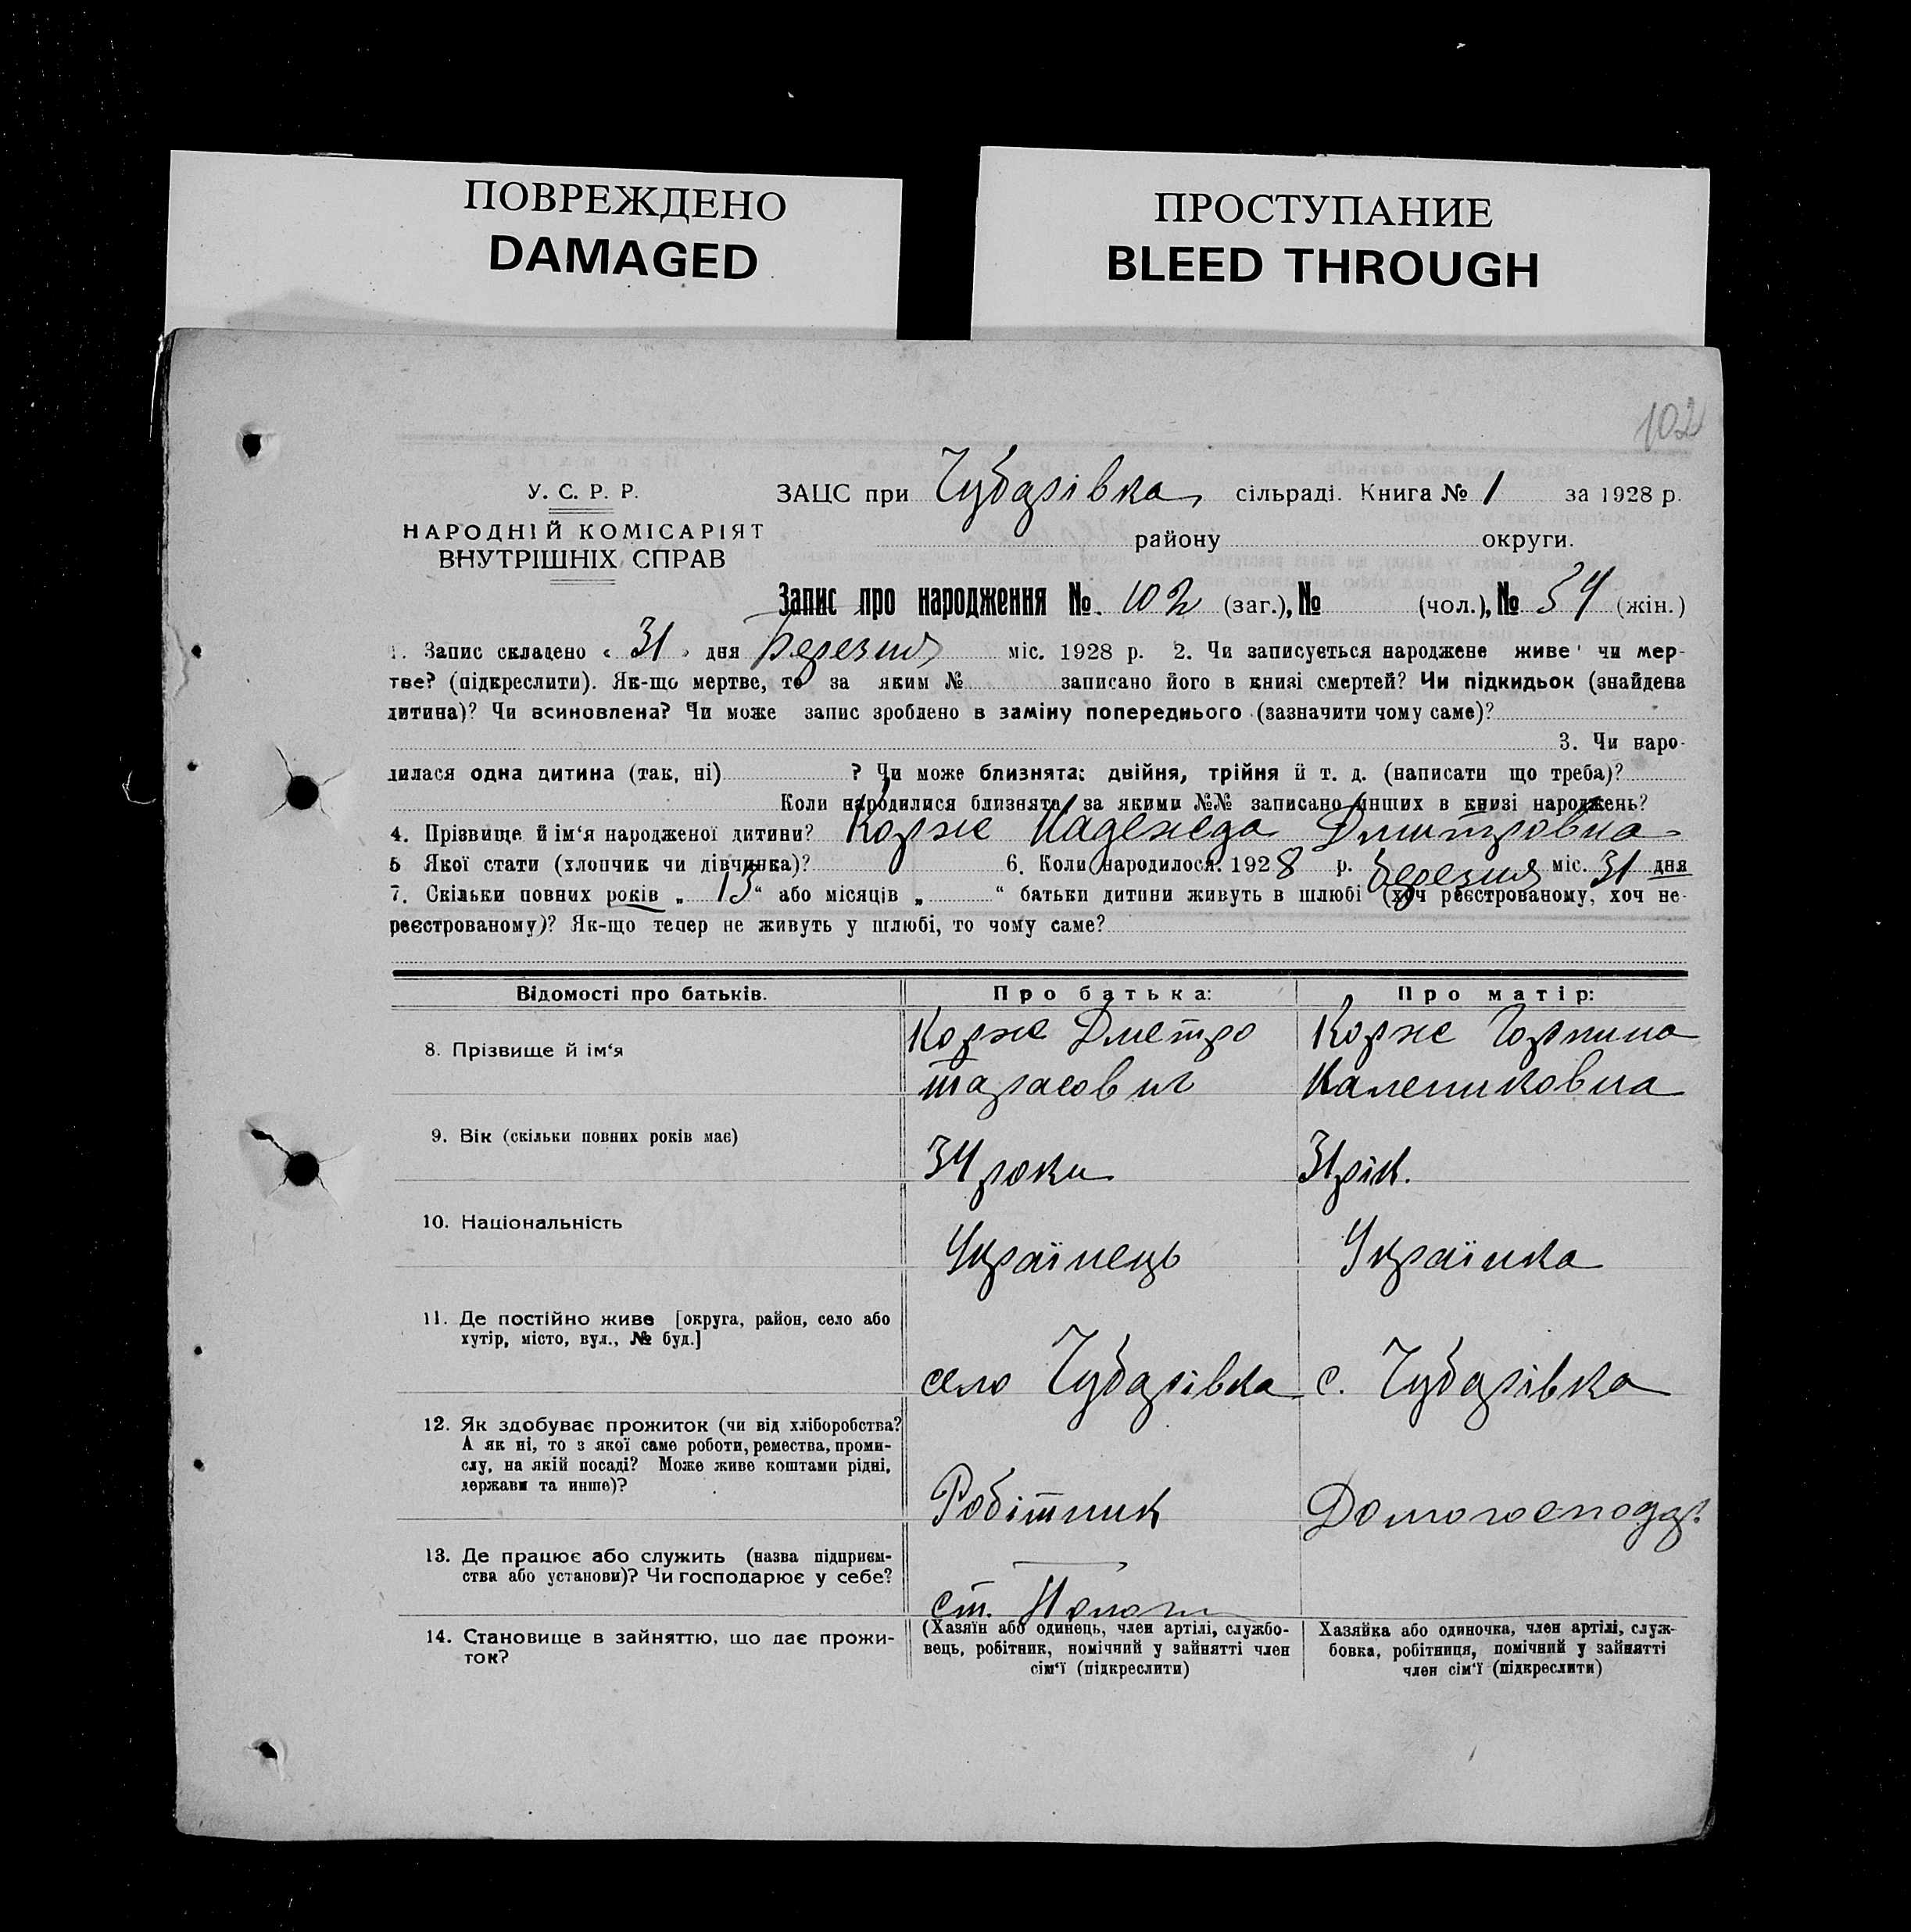 ПОВРЕЖДЕНО
DAMAGED
ПРОСТУПАНИЕ
BLEED THROUGH
102
У. С. Р. Р.
НАРОДНІЙ КОМІСАРІЯТ
ВНУТРІШНІХ СПРАВ
ЗАЦС при Чубарівка сільраді. Книга № 1 за 1928 р.
району округи.
Запис про народження № 102 (заг.), № (чол.), № 54 (жін.)
1. Запис складено « 31 » дня Березня міс. 1928 р. 2. Чи записується народжене живе чи мер-
тве? (підкреслити). Як-що мертве, то за яким № записано його в книзі смертей? Чи підкидьок (знайдена
дитина)? Чи всиновлена? Чи може запис зроблено в заміну попереднього (зазначити чому саме)?
3. Чи наро-
дилася одна дитина (так, ні) ? Чи може близнята: двійня, трійня й т. д. (написати що треба)?
Коли народилися близнята, за якими №№ записано инших в книзі народжень?
4. Прізвище й ім‘я народженої дитини? Корже Надежда Дмитровна
5 Якої стати (хлопчик чи дівчинка)? 6. Коли народилося. 1928 р. Березня міс. 31 дня
7. Скільки повних років „ 13 “ або місяців „ “ батьки дитини живуть в шлюбі (хоч реєстрованому, хоч не-
реєстрованому)? Як-що тепер не живуть у шлюбі, то чому саме?
Відомості про батьків. Про батька: Про матір:
8. Прізвище й ім‘я Корже Дметро Корже Горпина
тарасович Калениковна
9. Вік (скільки повних років має) 34 роки 31 рік.
10. Національність Українець Українка
11. Де постійно живе [округа, район, село або
хутір, місто, вул., № буд.]
село Чубарівка с. Чубарівка
12. Як здобуває прожиток (чи від хліборобства?
А як ні, то з якої саме роботи, ремества, проми-
слу, на якій посаді? Може живе коштами рідні,
держави та инше)?
Робітник Домогосподар.
13. Де працює або служить (назва підприєм-
ства або установи)? Чи господарює у себе?
ст. Пологи
14. Становище в зайняттю, що дає прожи-
ток?
(Хазяїн або одинець, член артілі, службо-
вець, робітник, помічний у зайнятті член
сім‘ї (підкреслити)
Хазяйка або одиночка, член артілі, служ-
бовка, робітниця, помічний у зайнятті
член сім‘ї (підкреслити)